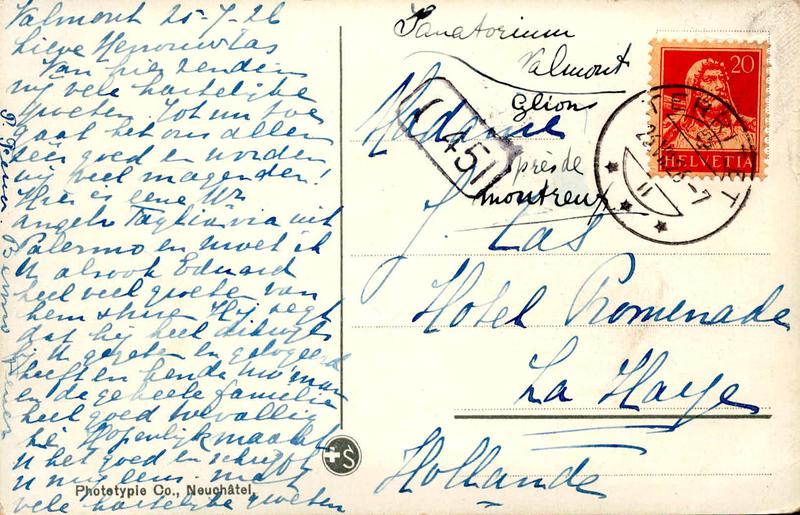 Valmont 25-7-26
Lieve Mevrouw Las
Van hier zenden
wij vele hartelijke
groeten. Tot nu toe
gaat het ons allen
zéér goed en worden
wij veel magerder!
Hier is eene Mr
angelo Tagliavia uit
Palermo en moet ik
U alsook Eduard
heel veel groeten van
hem sturen. Hij zegt
dat hij heel dikwijls
bij U gegeten en gelogeerd
heeft en kende
en de geheele familie
heel goed toevallig
hè. Hopenlijk maakt
U het goed en schrijft
U nog eens. met
vele hartelijke groeten
Sanatorium
Valmont
Glion
près de
montreux
451
Madame
J. Las
Hotel Promenade
La Haye
Hollande
20
HELVETIA
TERRITET
S
Phototypie Co., Neuchâtel.